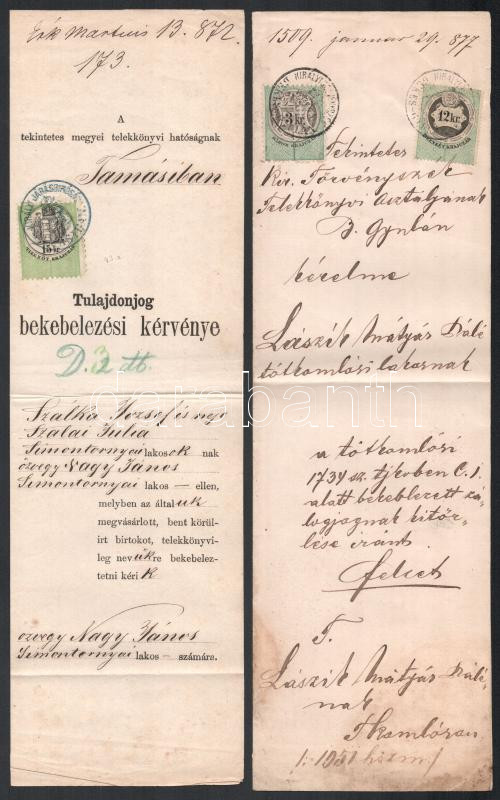 Érk Martius 13. 872.
173.
A
tekintetes megyei telekkönyvi hatóságnak
Tamásiban
JÁRÁSBIRÓSÁG
15 kr.
Tulajdonjog
bekebelezési kérvénye
D. 2 db.
Szálka Jozsef és neje
Szalai Julia
Simontornyai lakosok nak
özvegy Nagy János
Simontornyai lakos — ellen,
melyben az által uk
megvásárlott, bent körül-
irt birtokot, telekkönyvi-
leg nevükre bekebelez-
tetni kéri k
özvegy Nagy János
Simontornyai lakos — számára.
1509. januar 29. 877
KIRÁLYI
3 kr.
KIRÁLYI
12 kr.
Tekintetes
Kir. Törvényszék
Telekkönyvi osztályának
B. Gyulán
kérelme
Lászik Mátyás Páli
tótkomlósi lakosnak
a tótkomlósi
1734 sz. tjkvben C. 1
alatt bekeblezett zá-
logjognak kitör-
lése iránt
T.
Lászik Mátyás Páli-
nak
T.komlóson
darabanth